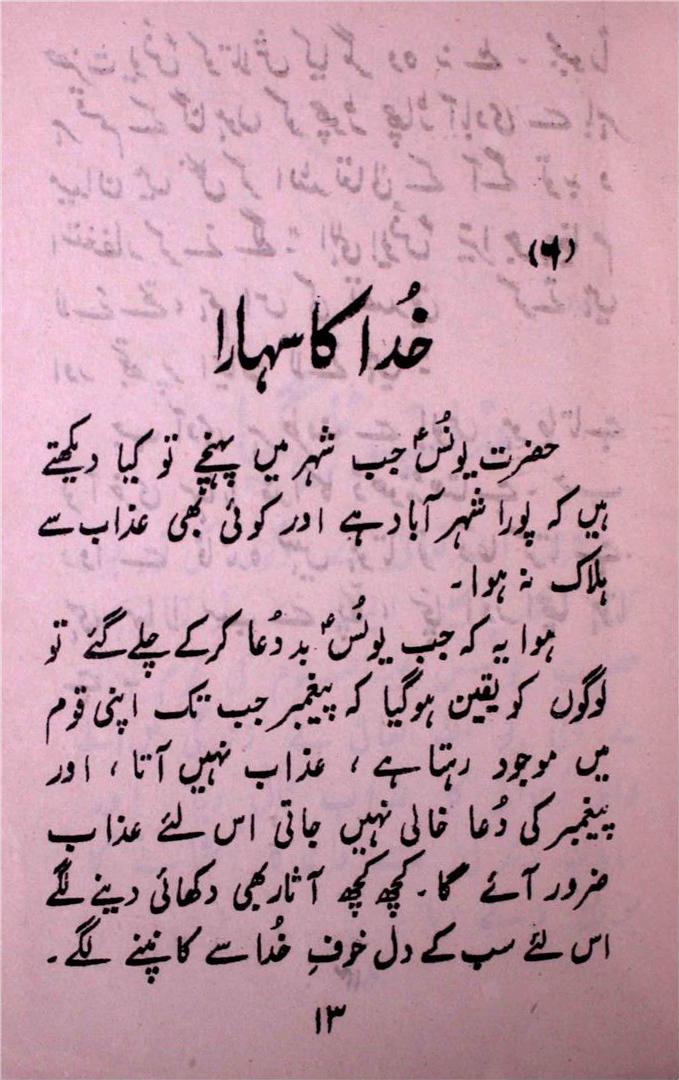 (۶)
خُدا کا سہارا
حضرت یونُسؑ جب شہر میں پہنچے تو کیا دیکھتے
ہیں کہ پورا شہر آباد ہے اور کوئی بھی عذاب سے
ہلاک نہ ہوا۔
ہوا یہ کہ جب یونُسؑ بد دُعا کرکے چلے گئے تو
لوگوں کو یقین ہوگیا کہ پیغمبر جب تک اپنی قوم
میں موجود رہتا ہے ، عذاب نہیں آتا ، اور
پیغمبر کی دُعا خالی نہیں جاتی اس لئے عذاب
ضرور آئے گا۔ کچھ کچھ آثار بھی دکھائی دینے لگے
اس لئے سب کے دل خوفِ خُدا سے کانپنے لگے۔
۱۳